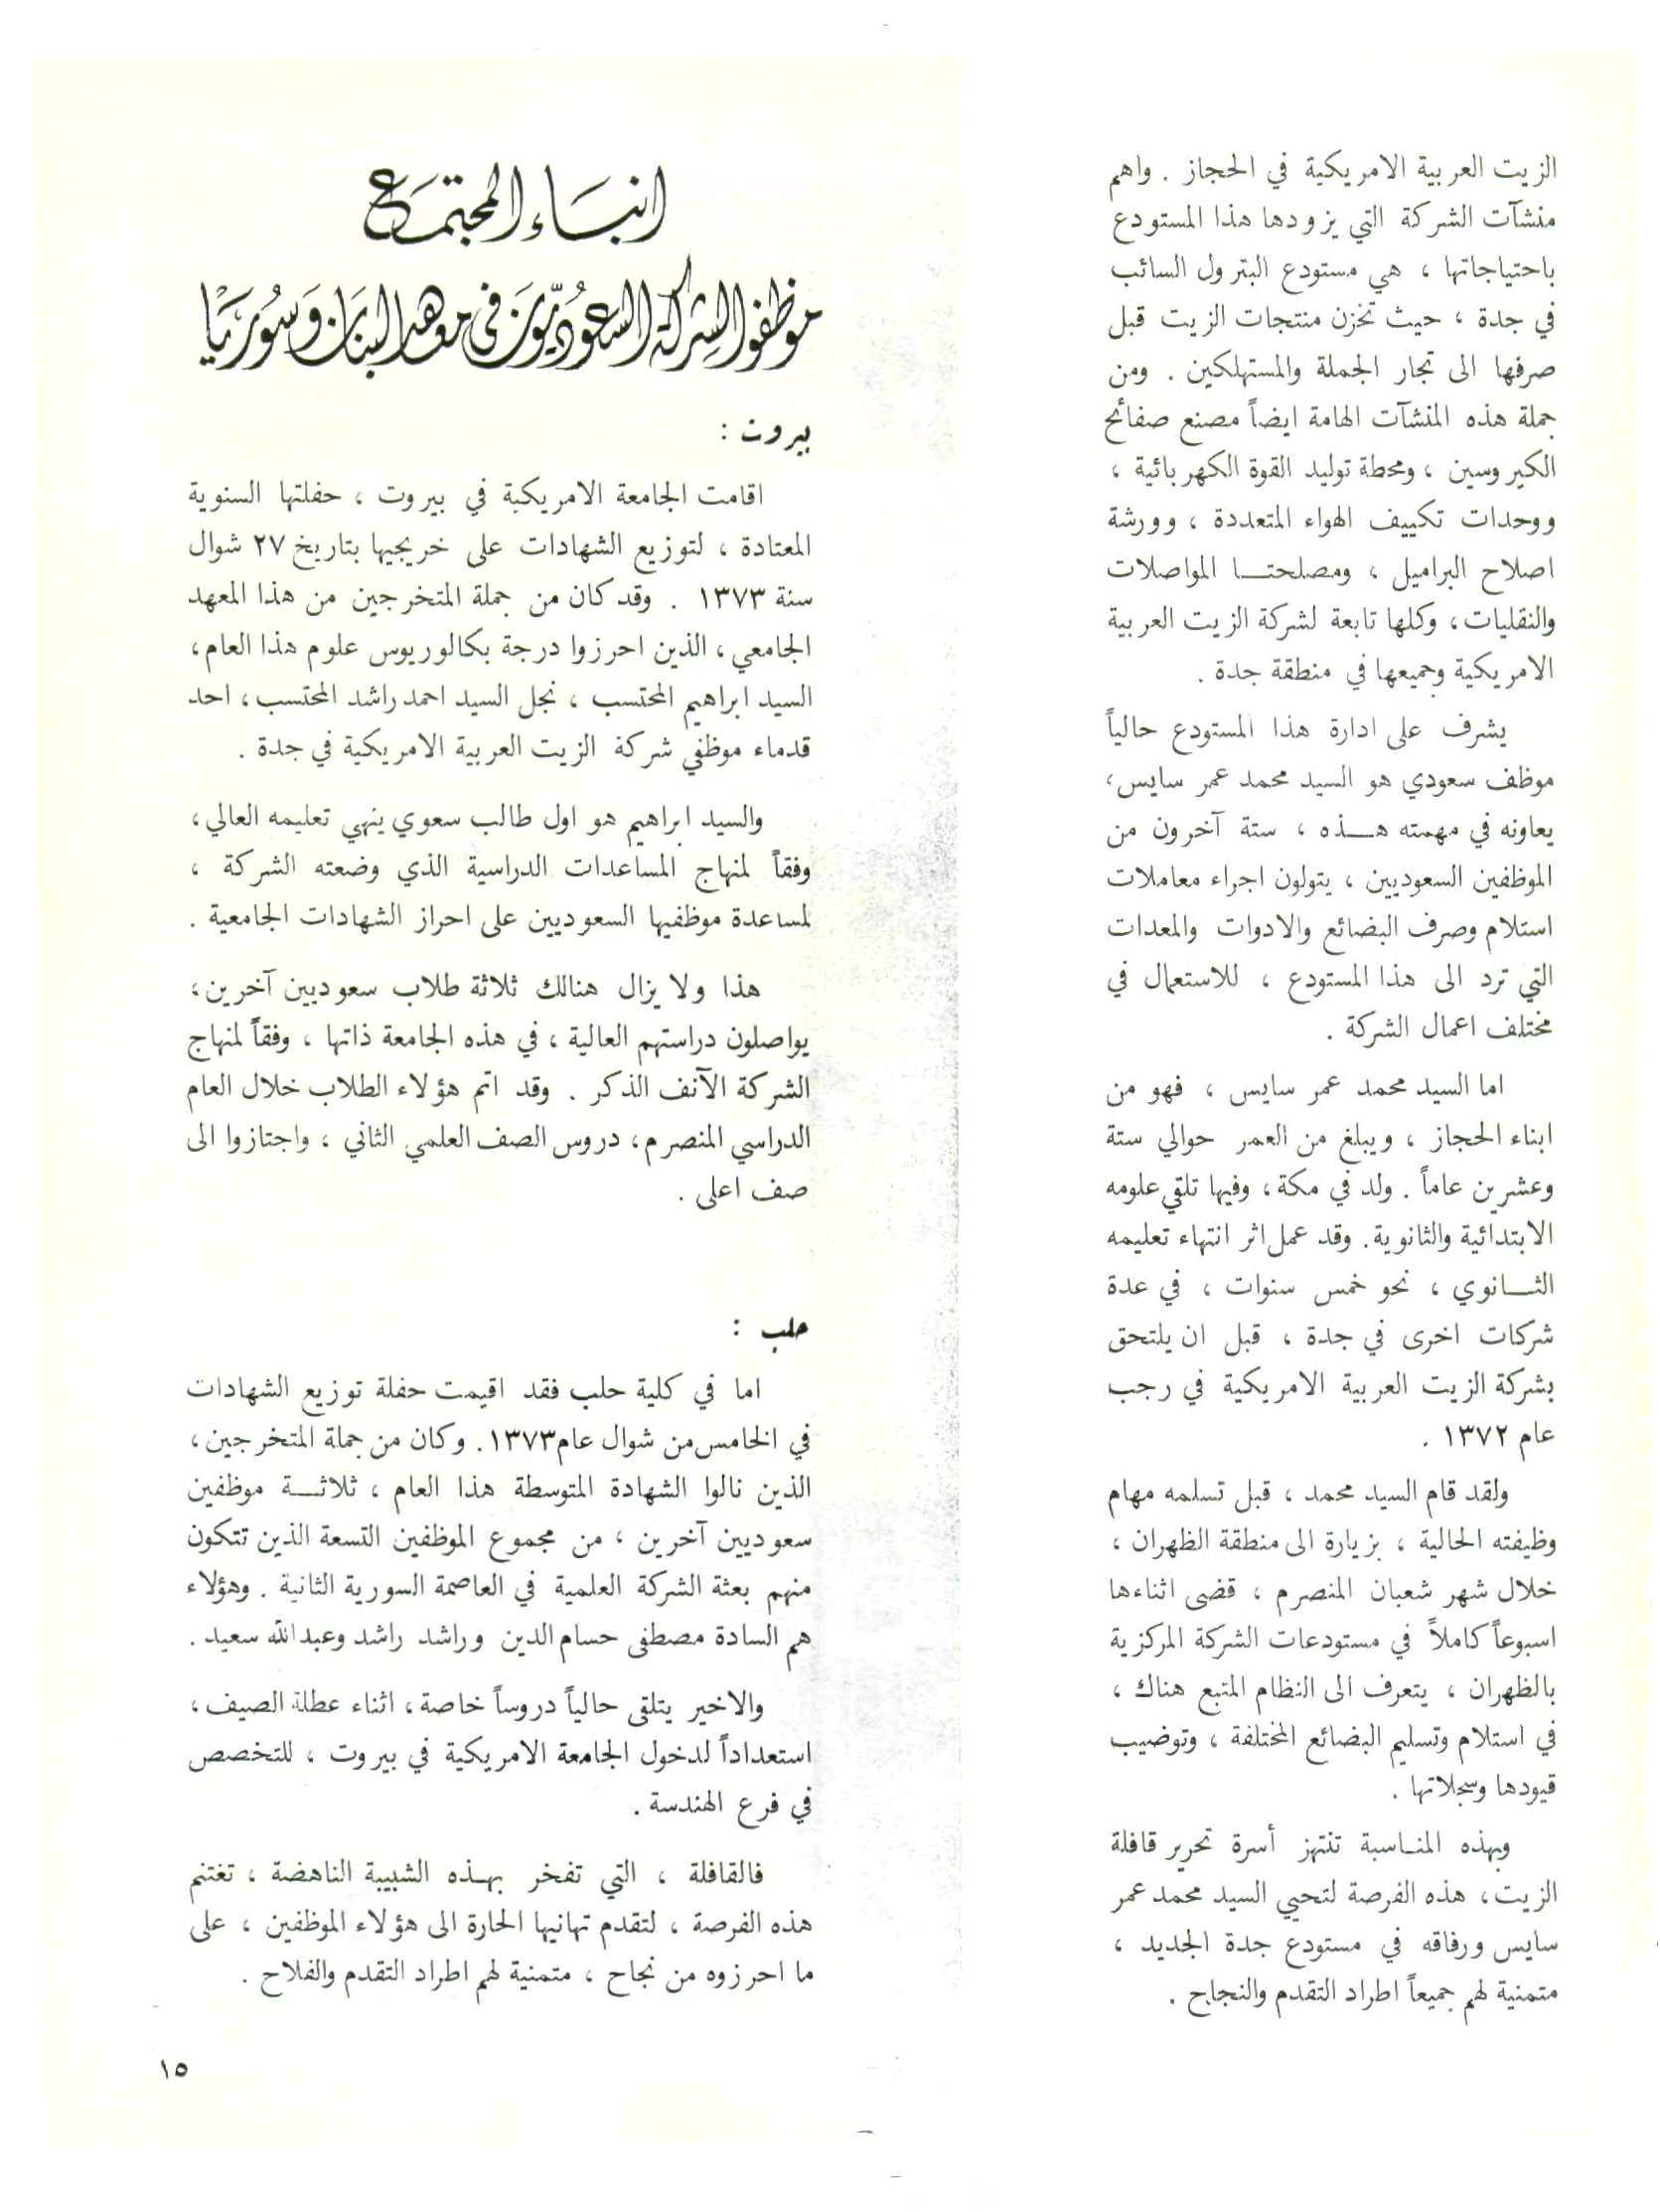 الزيت العربية الامريكية في الحجاز . واهم
منشآت الشركة التي يزودها هذا المستودع
باحتياجاتها ، هي مستودع البترول السائب
في جدة ، حيث تخزن منتجات الزيت قبل
صرفها الى تجار الجملة والمستهلكين . ومن
جملة هذه المنشآت الهامة ايضاً مصنع صفائح
الكيروسين ، ومحطة توليد القوة الكهربائية ،
ووحدات تكييف الهواء المتعددة ، وورشة
اصلاح البراميل ، ومصلحتا المواصلات
والنقليات ، وكلها تابعة لشركة الزيت العربية
الامريكية وجميعها في منطقة جدة .
يشرف على ادارة هذا المستودع حالياً
موظف سعودي هو السيد محمد عمر سايس،
يعاونه في مهمته هذه ، ستة آخرون من
الموظفين السعوديين ، يتولون اجراء معاملات
استلام وصرف البضائع والادوات والمعدات
التي ترد الى هذا المستودع ، للاستعمال في
مختلف اعمال الشركة .
اما السيد محمد عمر سايس ، فهو من
ابناء الحجاز ، ويبلغ من العمر حوالي ستة
وعشرين عاماً . ولد في مكة ، وفيها تلقي علومه
الابتدائية والثانوية . وقد عمل اثر انتهاء تعليمه
الثانوي ، نحو خمس سنوات ، في عدة
شركات اخرى في جدة ، قبل ان يلتحق
بشركة الزيت العربية الامريكية في رجب
عام ١٣٧٢ .
ولقد قام السيد محمد ، قبل تسلمه مهام
وظيفته الحالية ، بزيارة الى منطقة الظهران ،
خلال شهر شعبان المنصرم ، قضى اثناءها
اسبوعاً كاملاً في مستودعات الشركة المركزية
بالظهران ، يتعرف الى النظام المتبع هناك ،
في استلام وتسليم البضائع المختلفة ، وتوضيب
قيودها وسجلاتها .
وبهذه المناسبة تنتهز أسرة تحرير قافلة
الزيت ، هذه الفرصة لتحيي السيد محمد عمر
سايس ورفاقه في مستودع جدة الجديد ،
متمنية لهم جميعاً اطراد التقدم والنجاح .
انباء المجتمع
موظفو الشركة السعوديون في معاهد لبنان وسوريا
بيروت :
اقامت الجامعة الامريكية في بيروت ، حفلتها السنوية
المعتادة ، لتوزيع الشهادات على خريجيها بتاريخ ٢٧ شوال
سنة ١٣٧٣ . وقد كان من جملة المتخرجين من هذا المعهد
الجامعي ، الذين احرزوا درجة بكالوريوس علوم هذا العام ،
السيد ابراهيم المحتسب ، نجل السيد احمد راشد المحتسب ، احد
قدماء موظفي شركة الزيت العربية الامريكية في جدة .
والسيد ابراهيم هو اول طالب سعوي ينهي تعليمه العالي ،
وفقاً لمنهاج المساعدات الدراسية الذي وضعته الشركة ،
لمساعدة موظفيها السعوديين على احراز الشهادات الجامعية .
هذا ولا يزال هنالك ثلاثة طلاب سعوديين آخرين ،
يواصلون دراستهم العالية ، في هذه الجامعة ذاتها ، وفقاً لمنهاج
الشركة الآنف الذكر . وقد اتم هؤلاء الطلاب خلال العام
الدراسي المنصرم ، دروس الصف العلمي الثاني ، واجتازوا الى
صف اعلى .
حلب :
اما في كلية حلب فقد اقيمت حفلة توزيع الشهادات
في الخامس من شوال عام ١٣٧٣ . وكان من جملة المتخرجين ،
الذين نالوا الشهادة المتوسطة هذا العام ، ثلاثة موظفين
سعوديين آخرين ، من مجموع الموظفين التسعة الذين تتكون
منهم بعثة الشركة العلمية في العاصمة السورية الثانية . وهؤلاء
هم السادة مصطفى حسام الدين وراشد راشد وعبدالله سعيد .
والاخير يتلقى حالياً دروساً خاصة ، اثناء عطلة الصيف ،
استعداداً لدخول الجامعة الامريكية في بيروت ، للتخصص
في فرع الهندسة .
فالقافلة ، التي تفخر بهذه الشبيبة الناهضة ، تغتنم
هذه الفرصة ، لتقدم تهانيها الحارة الى هؤلاء الموظفين ، على
ما احرزوه من نجاح ، متمنية لهم اطراد التقدم والفلاح .
١٥